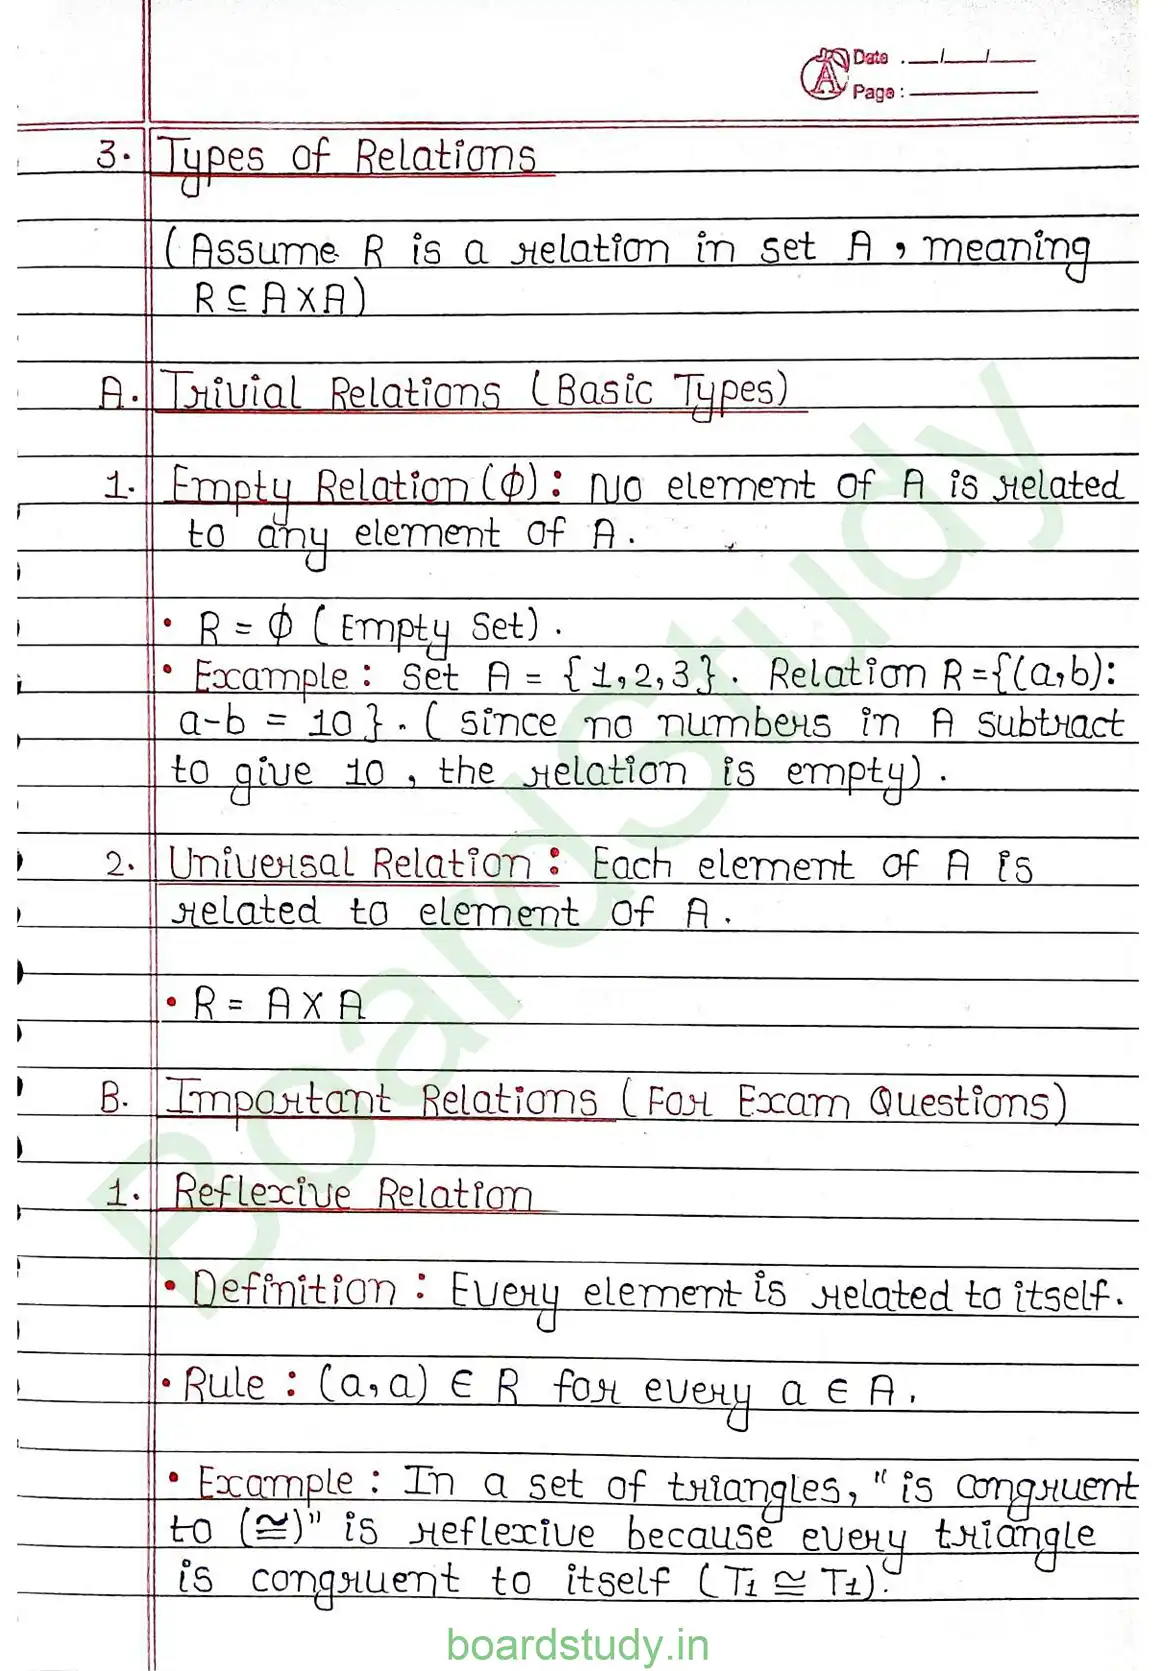 Date . __/__/__
Page :
3. Types of Relations
(Assume R is a relation in set A, meaning
R ⊆ A X A)
A. Trivial Relations (Basic Types)
1. Empty Relation (ϕ) : No element of A is related
to any element of A.
• R = ϕ (Empty Set).
• Example : Set A = {1,2,3}. Relation R ={(a,b):
a-b = 10}. (since no numbers in A subtract
to give 10, the relation is empty).
2. Universal Relation : Each element of A is
related to element of A.
• R = A X A
B. Important Relations (For Exam Questions)
1. Reflexive Relation
• Definition : Every element is related to itself.
• Rule : (a,a) ∈ R for every a ∈ A.
• Example : In a set of triangles, "is congruent
to (≅)" is reflexive because every triangle
is congruent to itself (T1 ≅ T1).
BoardStudy
boardstudy.in